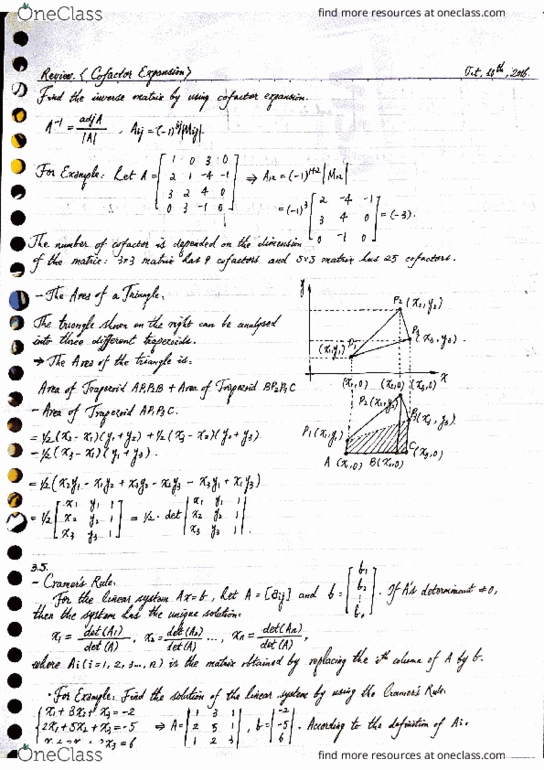 OneClass
find more resources at oneclass.com
Review. { Cofactor Expansion} Oct. 14th, 2016.
Find the inverse matrix by using cofactor expansion.
A⁻¹ = adjA / |A| , Aij = (-1)^ij |Mij|.
For Example: Let A = [1 0 3 0; 2 1 -4 -1; 3 2 4 0; 0 3 -1 0] ⇒ A12 = (-1)^1+2 |M12|
= (-1)³ [2 -4 -1; 3 4 0; 0 -1 0] = (-3).
The number of cofactor is depended on the dimension
of the matrix: 3×3 matrix has 9 cofactors and 5×5 matrix has 25 cofactors.
- The Area of a Triangle.
The triangle shown on the right can be analysed
into three different trapezoids.
⇒ The Area of the triangle is:
Area of Trapezoid AP1P2B + Area of Trapezoid BP2P3C
- Area of Trapezoid AP1P3C.
= 1/2 (x2 - x1)(y1 + y2) + 1/2 (x3 - x2)(y2 + y3)
- 1/2 (x3 - x1)(y1 + y3).
= 1/2 (x2y1 - x1y2 + x3y2 - x2y3 - x3y1 + x1y3)
= 1/2 [x1 y1 1; x2 y2 1; x3 y3 1] = 1/2 · det |x1 y1 1; x2 y2 1; x3 y3 1|
y
P2 (x2, y2)
P3 (x3, y3)
(x1, y1) P1
(x1, 0) (x2, 0) (x3, 0) x
P2 (x2, y2)
P3 (x3, y3)
P1 (x1, y1)
A (x1, 0) B (x2, 0) C (x3, 0)
3.5.
- Cramer's Rule.
For the linear system Ax = b, Let A = [aij] and b = [b1; b2; ⋮; bn]. If A's determinant ≠ 0,
then the system has the unique solution:
x1 = det(A1) / det(A) , x2 = det(A2) / det(A) ..., xn = det(An) / det(A) ,
where Ai (i = 1, 2, 3..., n) is the matrix obtained by replacing the ith column of A by b.
· For Example: Find the solution of the linear system by using the Cramer's Rule.
{ x1 + 3x2 + x3 = -2
2x1 + 5x2 + x3 = -5 ⇒ A = [1 3 1; 2 5 1; 1 2 3], b = [-2; -5; 6]. According to the definition of Ai.
x1 + 2x2 + 3x3 = 6
OneClass
find more resources at oneclass.com